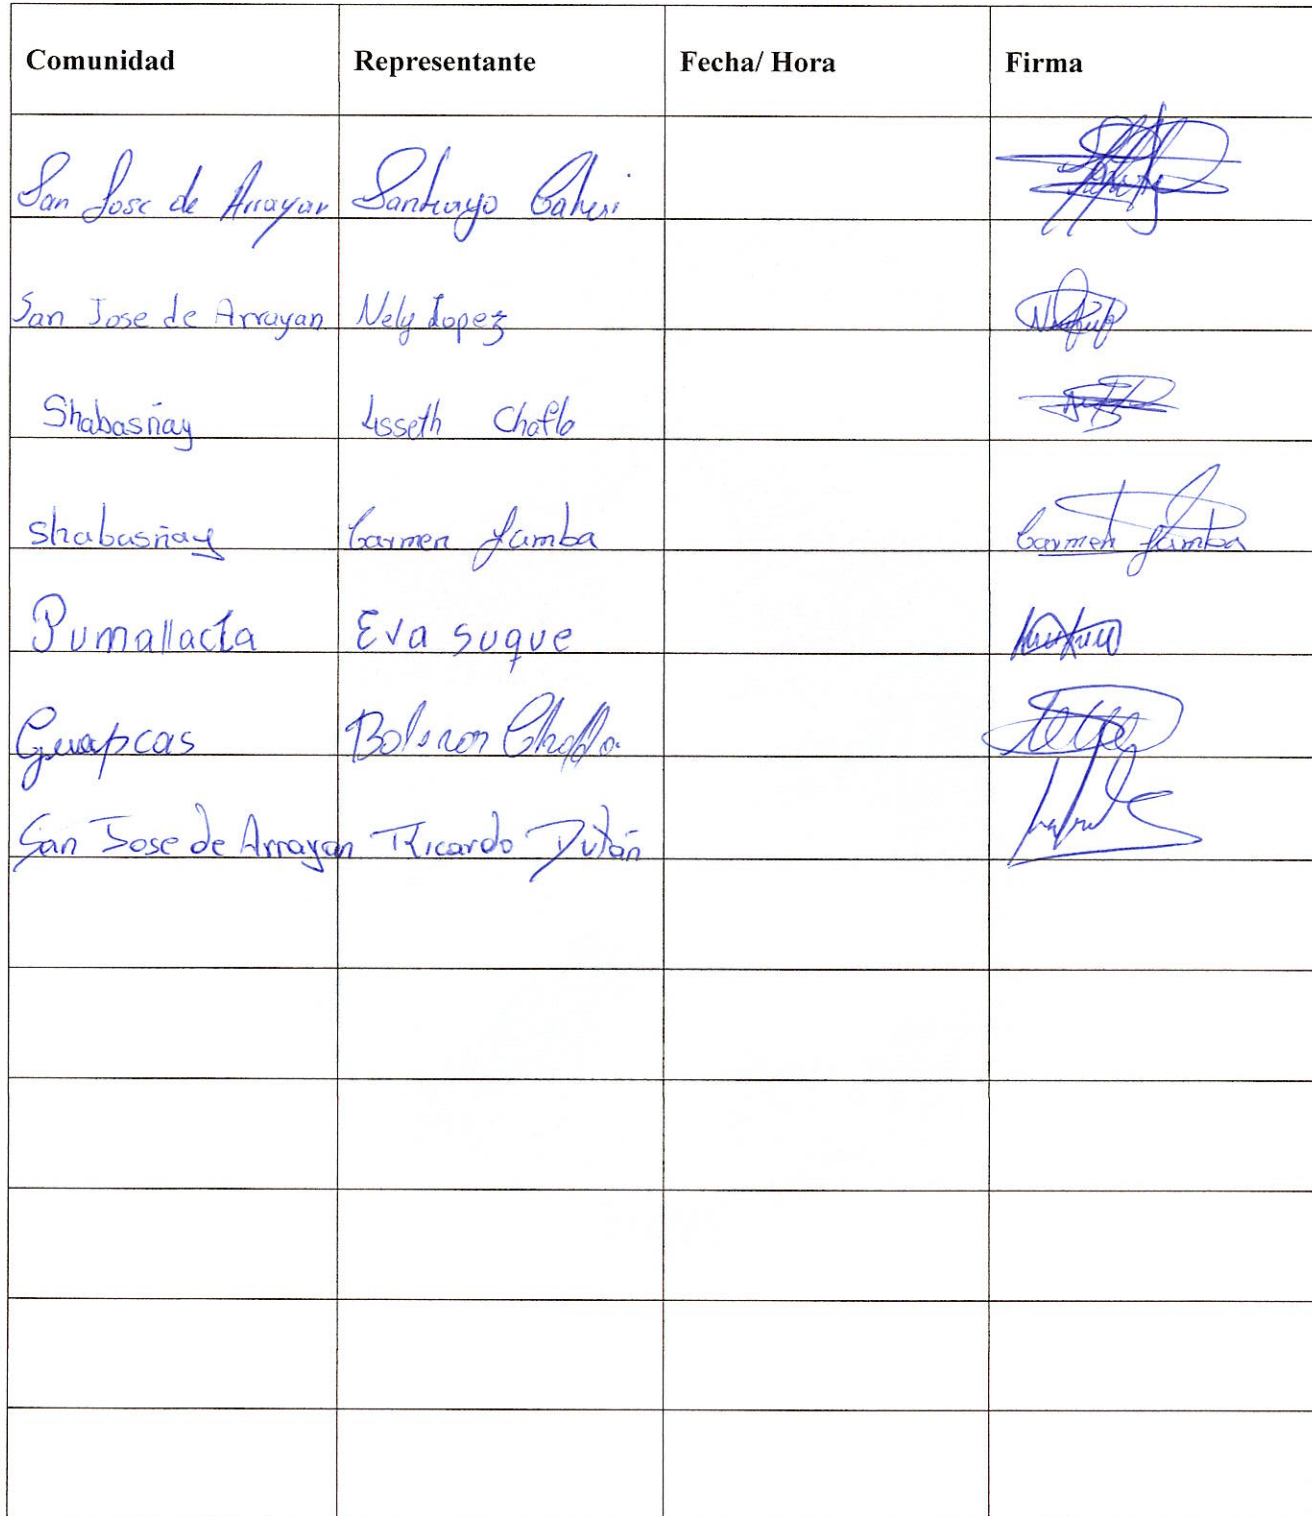 Comunidad Representante Fecha/ Hora Firma
San Jose de Arrayan Santiago
San Jose de Arrayan Nely Lopez
Shabasñay Lisseth Chaflo
shabasñay Carmen Yamba Carmen Yamba
Pumallacta Eva suque
Guapcas Chafla
San Jose de Arrayan Ricardo Dután